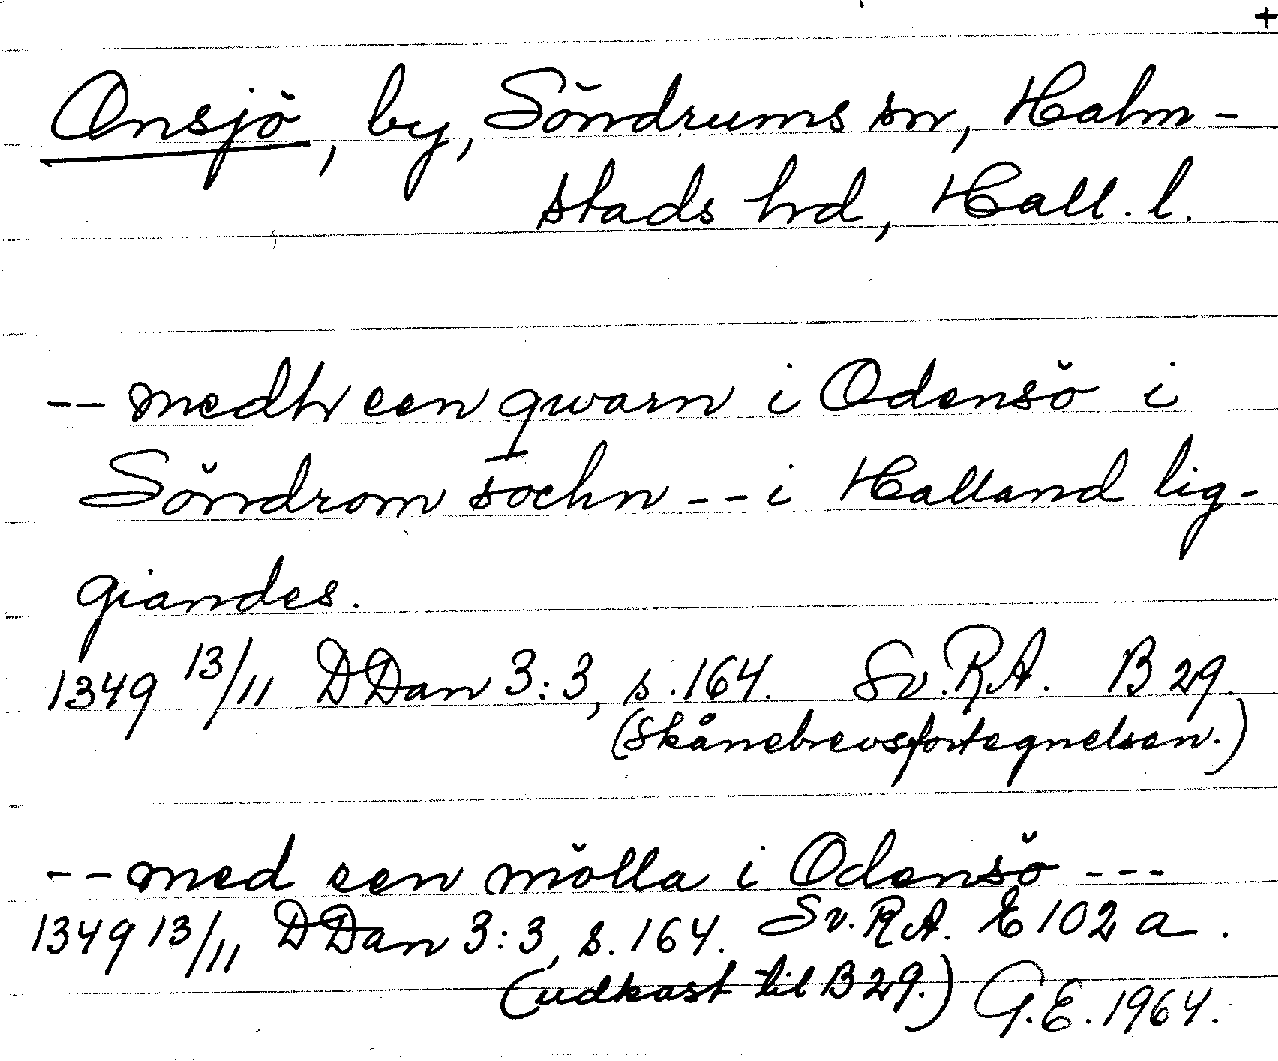 +
Onsjö, by, Söndrums sn, Halm-
stads hd, Hall. l.
-- medh een qwarn i Odensö i
Söndrom sochn -- i Halland lig-
giandes.
1349 13/11 DDan 3:3, s. 164. Sv. RA. B 29.
(Skånebrevsfortegnelsen.)
-- med een mölla i Odensö ---
1349 13/11 DDan 3:3, s. 164. Sv. RA. E 102 a.
(udkast til B 29.) G.E. 1964.